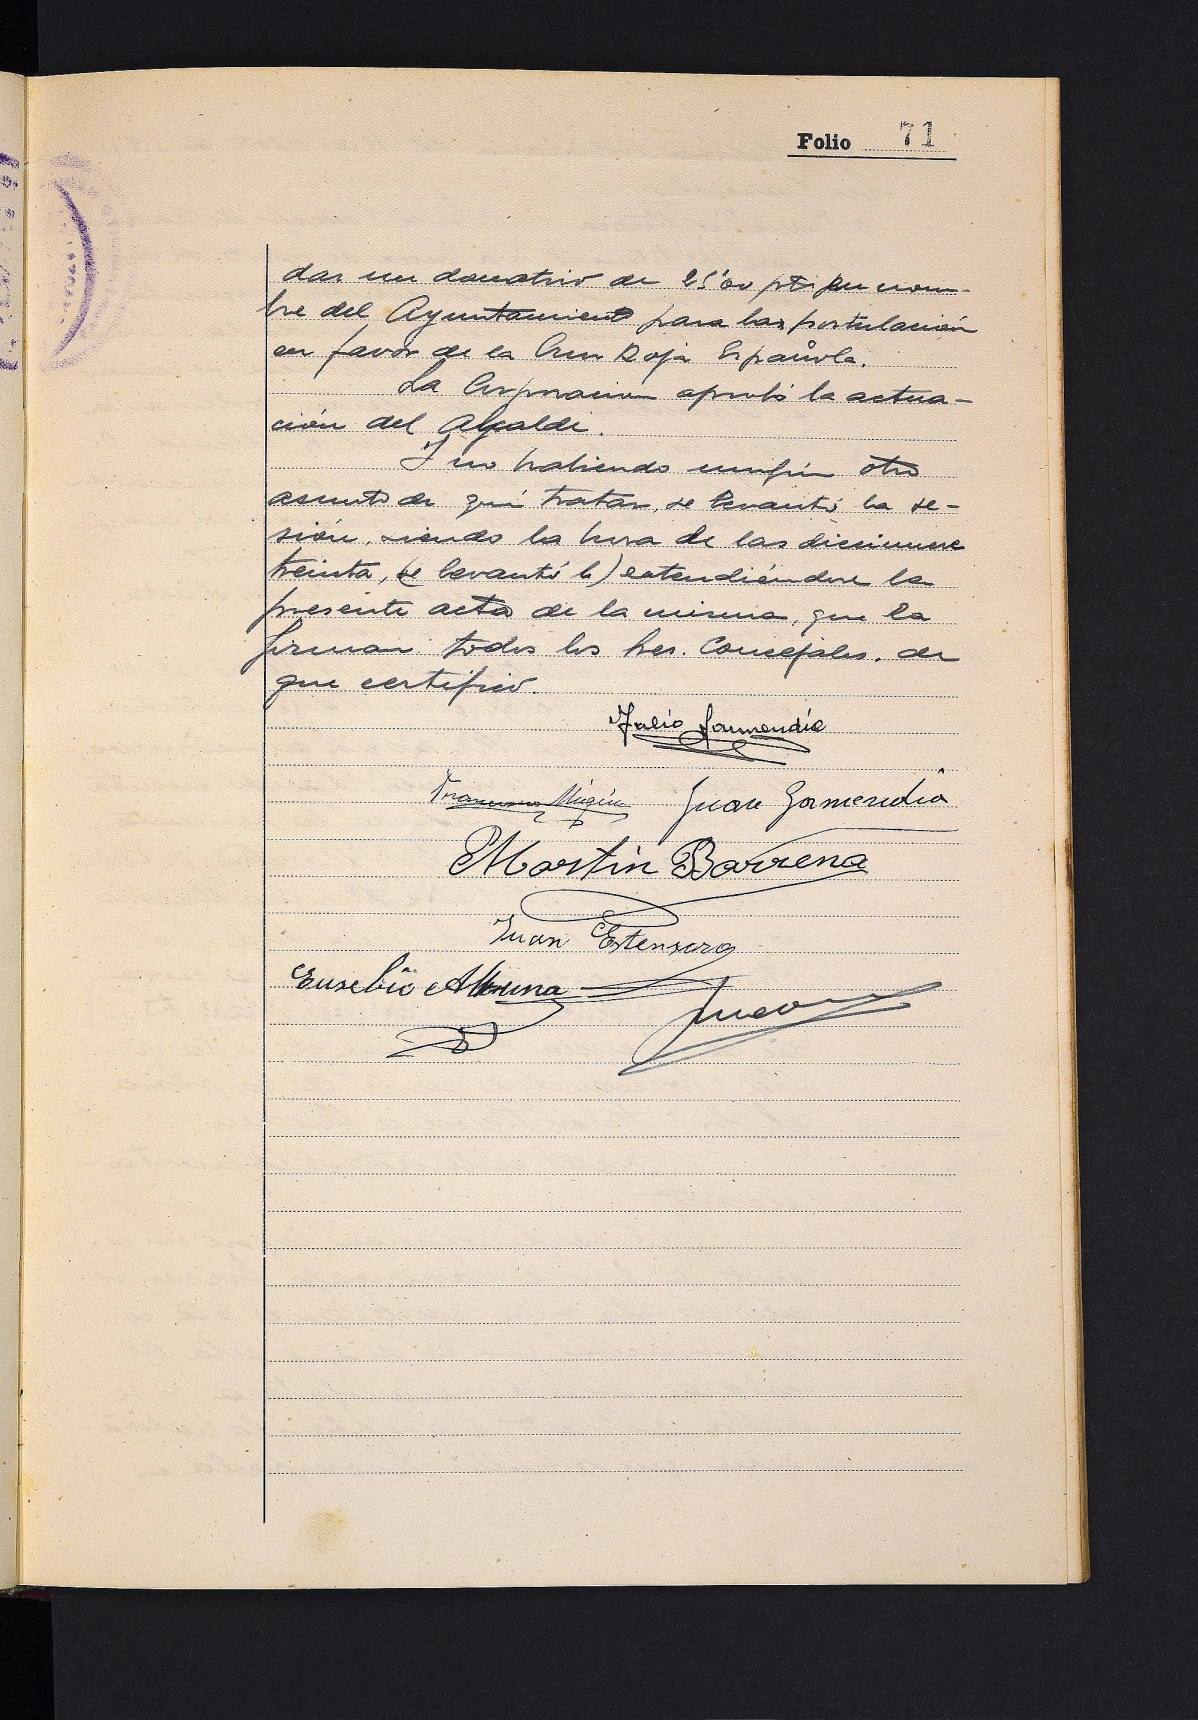 Folio 71
dar un donativo de 25'00 pts en nom-
bre del Ayuntamiento para la postulación
en favor de la Cruz Roja Española.
La Corporación aprobó la actua-
ción del Alcalde.
Y no habiendo ningún otro
asunto de qué tratar, se levantó la se-
sión, siendo la hora de las diecinueve
treinta, (se levantó l) extendiéndose la
presente acta de la misma, que la
firman todos los Sres. Concejales, de
que certifico.
Julio Garmendia
Francisco Múgica Juan Garmendia
Martin Barrena
Juan Estensoro
Eusebio